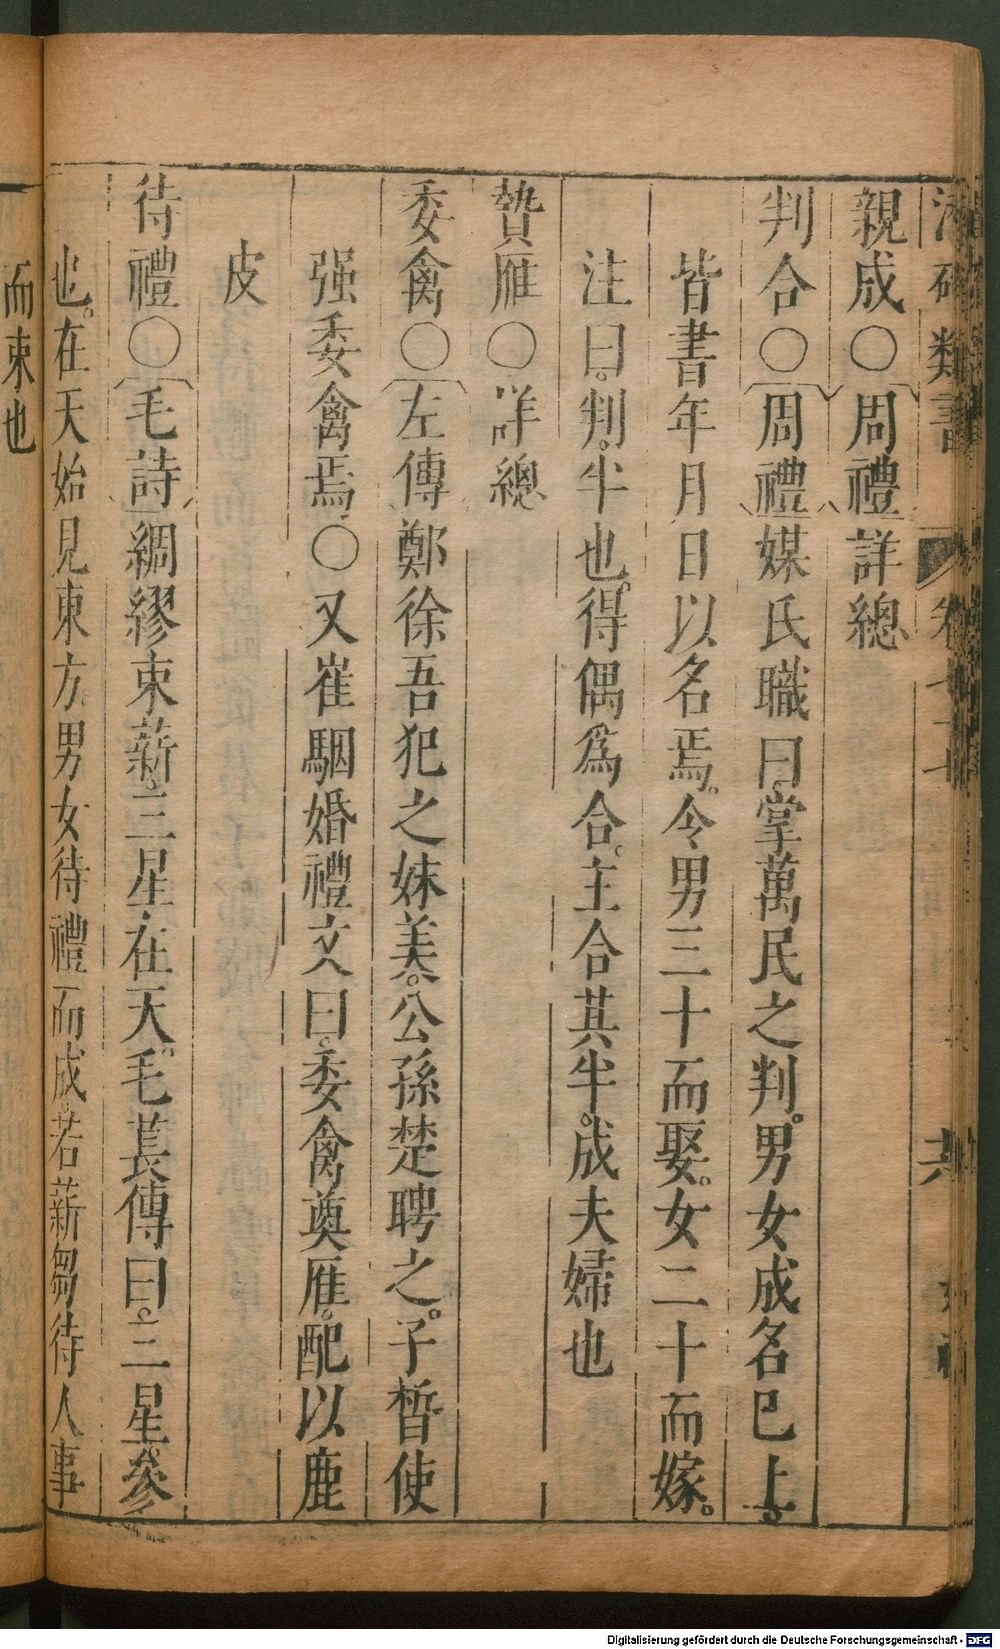 類書
親成○周禮詳總
判合○周禮媒氏職曰掌萬民之判。男女成名巳上。
皆書年月日以名焉。令男三十而娶。女二十而嫁。
注曰。判。半也。得偶爲合。主合其半。成夫婦也
贄雁○詳總
委禽○左傳鄭徐吾犯之妹美。公孫楚聘之。子晳使
强委禽焉。○又崔駰婚禮文曰。委禽奠雁。配以鹿
皮
待禮○毛詩綢繆束薪。三星在天。毛萇傳曰。三星。參
也。在天始見東方。男女待禮而成。若薪芻待人事
而束也
Digitalisierung gefördert durch die Deutsche Forschungsgemeinschaft - DFG